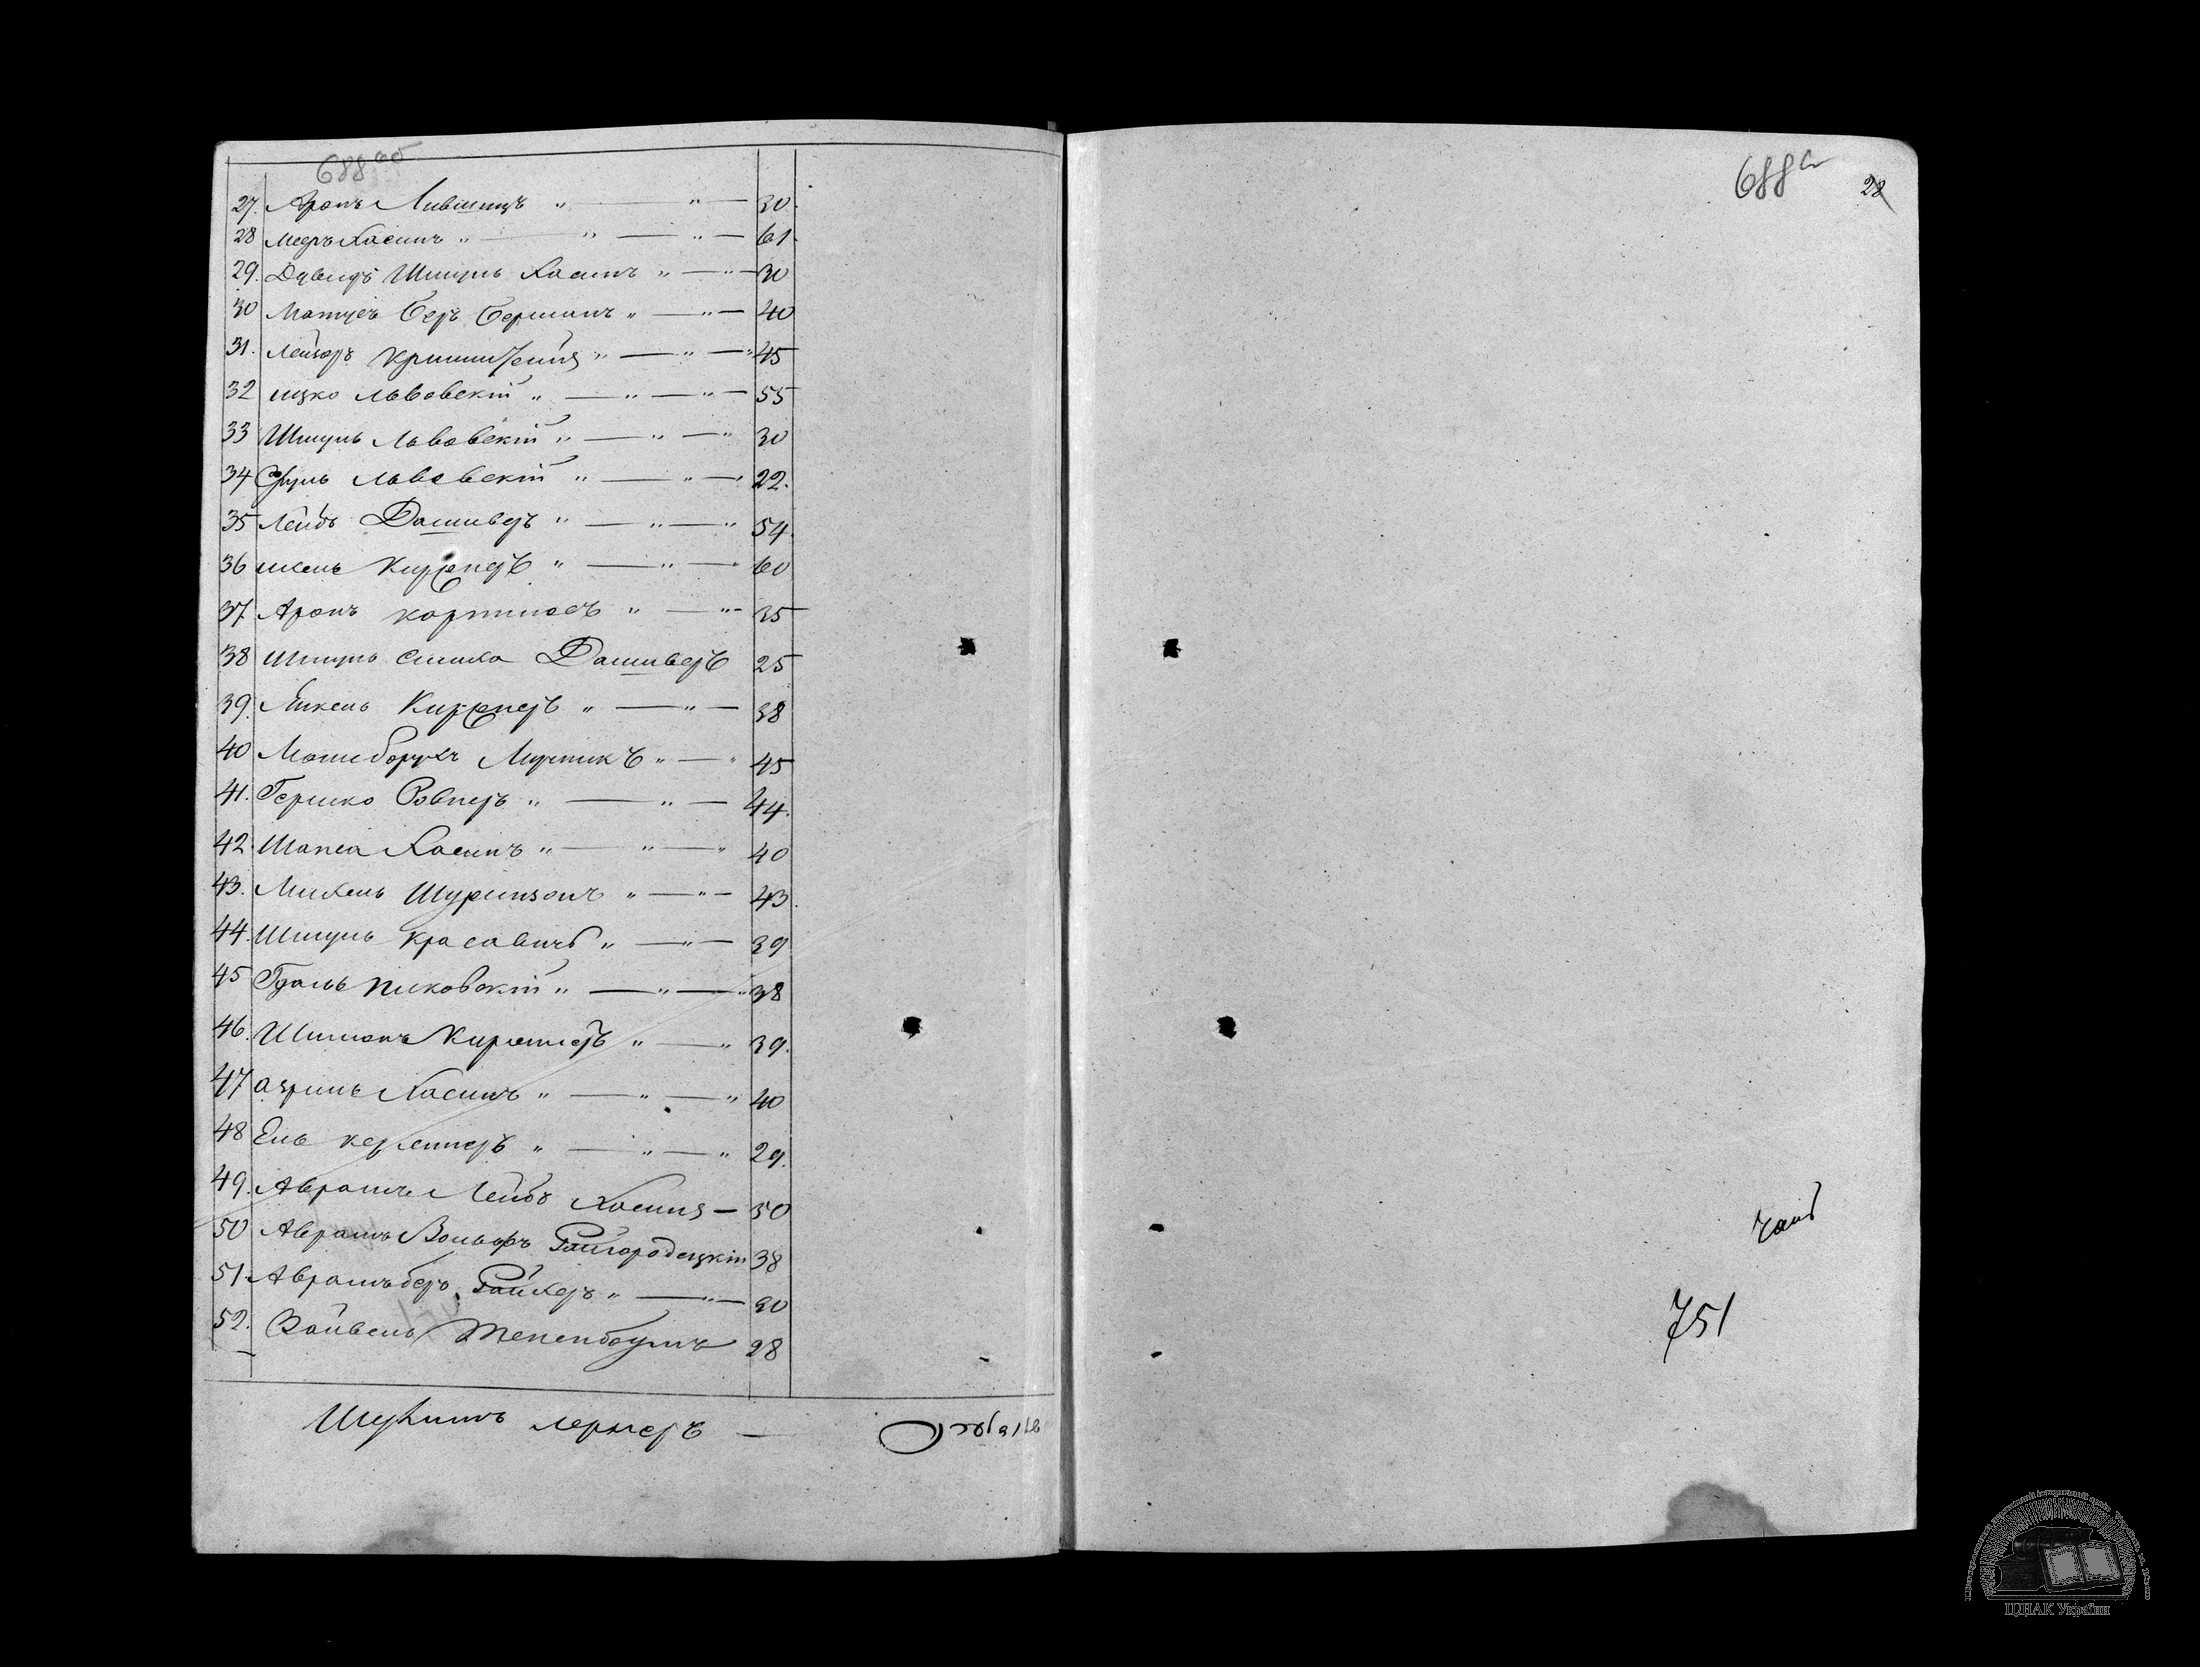 688 об
27. Аронъ Лившицъ " — " — 30.
28 Мееръ Хасинъ " — " — " — 61.
29. Дувидъ Шмуль Хасинъ " — " — 30
30 Матусъ Беръ Берманъ " — " — 40
31. Лейзоръ " — " — " 45
32 ицко Львовскій " — " — " — 55
33 Шмуль Львовскій " — " — " 30
34 Сруль Львовскій " — " — " 22.
35 Лейбъ Дашиверъ " — " — " 54.
36 Киржнеръ " — " — " 60
37. Аронъ " — " - 35
38 Шмуль Симха Дашиверъ 25
39. Янкель Киржнеръ " — " — 38
40 Мошкоборухъ " — " 45
41. Гершко Ровнеръ " — " — 44.
42. Шапса Хасинъ " — " — " 40
43. Михель Шуринзонъ " — " — 43.
44. Шмуль Красавинъ " — " — 39
45 Гдаль Пиковскій " — " — " 38
46. Шимонъ " — " 39.
47 азриль Хасинъ " — " — " 40
48 Ель " — " — " 29.
49. Аврамъ Лейбъ Хасинъ — 50
50 Аврамъ Вольфъ Райгородецкій 38
51. Аврамъ беръ Райхеръ " — " — 30
52. Зайвель Тененбоумъ 28
Шулимъ Лернеръ —
688а
28
751
ЦДІАК України